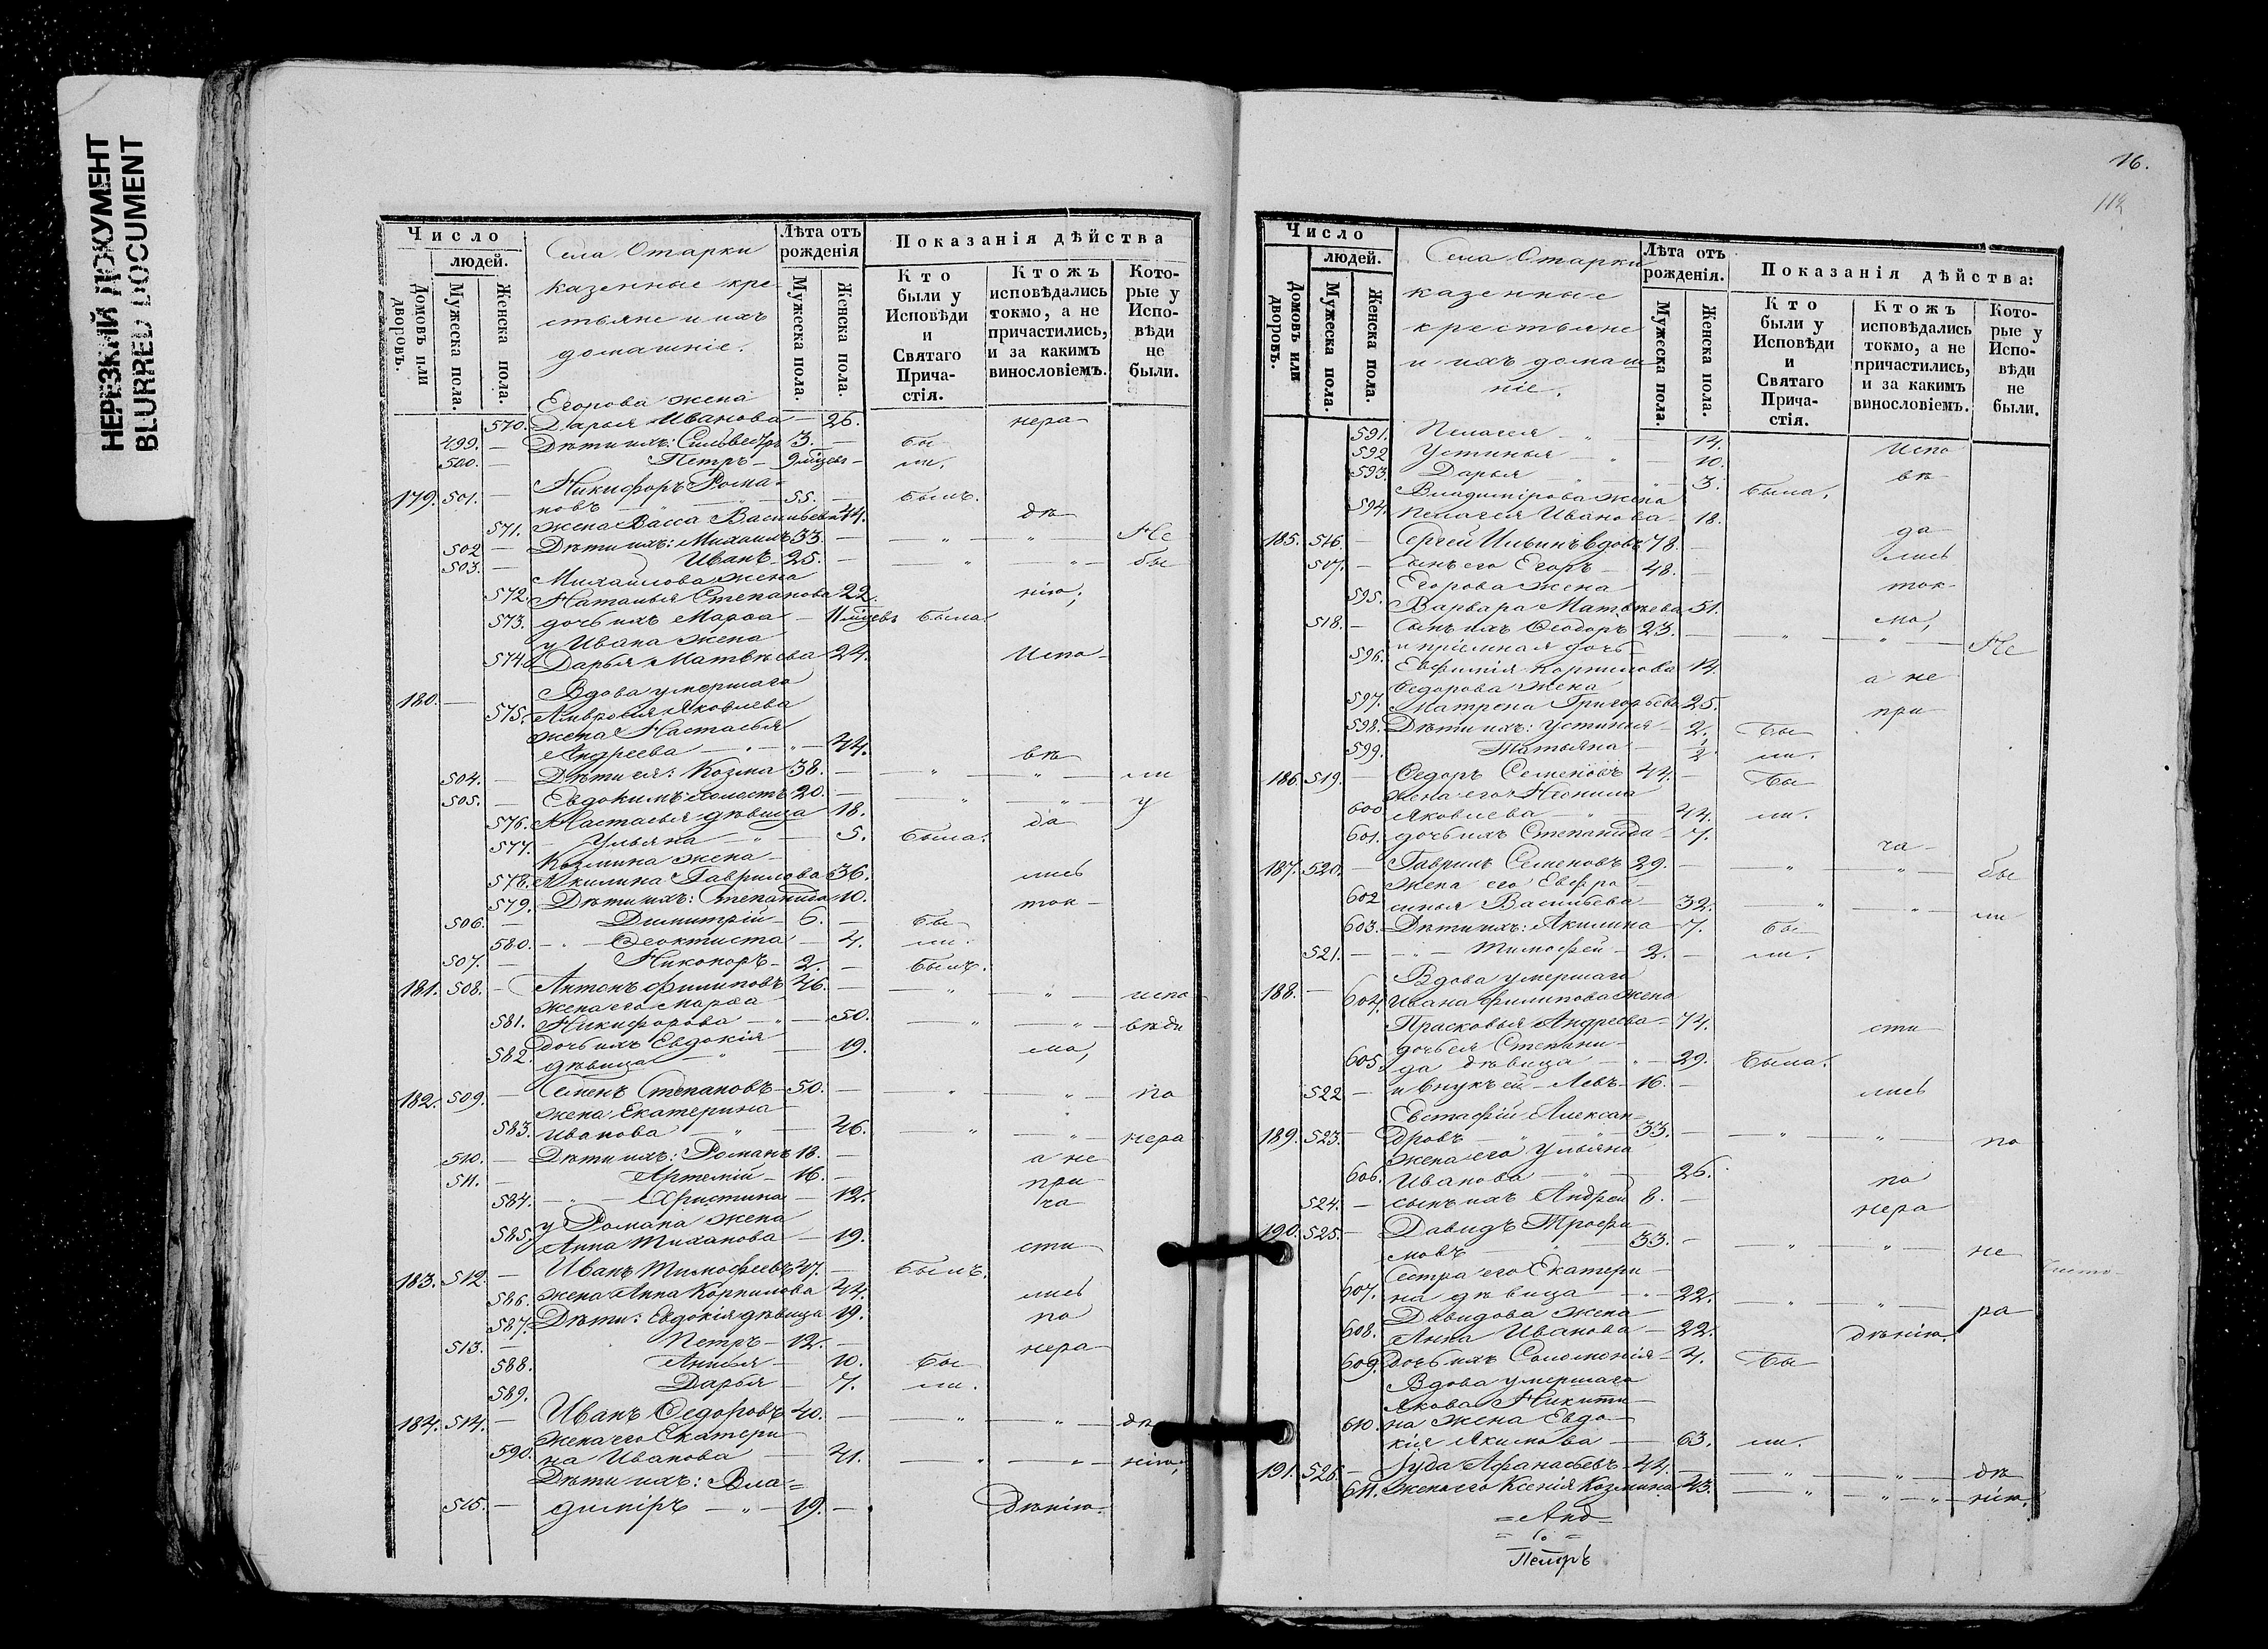 НЕРЕЗКИЙ ДОКУМЕНТ
BLURRED DOCUMENT
Число
людей.
Домовъ или дворовъ.
Мужеска пола.
Женска пола.
Села Отарки
казенные кре-
стьяне и ихъ
домашніе.
Лѣта отъ рожденія
Мужеска пола.
Женска пола.
Показанія дѣйства
Кто были у Исповѣди и Святаго Прича-стія.
Ктожъ исповѣдались токмо, а не причастились, и за какимъ винословіемъ.
Кото-рые у Испо-вѣди не были.
Егорова жена
570. Дарья Иванова — 26. нера
499. — Дѣти ихъ: Сильвестръ 3. — бы
500. — Петръ — 9 мѣцевъ — ли.
Никифоръ Рома-
179. 501. — новъ — 55. — былъ.
571. жена Васса Васильева 44. дѣ
502 — Дѣти ихъ: Михаилъ 33. — " — " — Не
503. — Иванъ — 25. — — " — " — бы
Михайлова жена
572. Наталья Степанова 22. нію;
573. дочь ихъ Марѳа — 11 мѣцевъ была.
у Ивана жена
574. Дарья Матвѣева 24. Испо-
Вдова умершаго
180. — 575. Амвросія Яковлева
жена Настасья
Андреева — " — " — 44. вѣ
504. — Дѣти ея: Козма 38. — — " — " — ли
505. — Евдокимъ холостъ 20. — " — " — у
576. Настасья дѣвица 18. да
577. — Ульяна — " — 5. была.
Козмина жена
578. Акилина Гаврилова 36. лись
579. Дѣти ихъ: Степанида 10. ток-
506. — Димитрій — 6. — бы
580. — " — Ѳеоктиста — 4. ли.
507. — Никоноръ — 2. — былъ.
181. 508. — Антонъ Филиповъ 46. — " — " — испо
жена его Марѳа
581. Никифорова — " — 50. — " — " — вѣди
дочь ихъ Евдокія
582. дѣвица — " — 19. мо,
182. 509. — Семенъ Степановъ — 50. — " — " — по
жена Екатерина
583. Иванова — " — 46. — " — " — нера
510. — Дѣти ихъ: Романъ 18. — а не
511. — Артемій — 16. — при
584. — " — Христина — 12. ча
у Романа жена
585. Анна Тиханова — 19. сти
183. 512. — Иванъ Тимофеевъ 47. — былъ.
586. жена Анна Корнилова 44. лись
587. Дѣти: Евдокія дѣвица 19. по
513. — Петръ — 12. — нера
588. Анисья — 10. бы
589. Дарья — 7. ли.
184. 514. — Иванъ Ѳедоровъ 40. — " — " — дѣ
жена его Екатери
590. на Иванова — 41. — " — " — нію;
Дѣти ихъ: Вла=
515. — диміръ — " — 19. — дѣнію.
16.
112
Число
людей.
Домовъ или дворовъ.
Мужеска пола.
Женска пола.
Села Отарки
казенные
крестьяне
и ихъ домаш
ніе.
Лѣта отъ рожденія.
Мужеска пола.
Женска пола.
Показанія дѣйства:
Кто были у Исповѣди и Святаго Прича-стія.
Ктожъ исповѣдались токмо, а не причастились, и за какимъ винословіемъ.
Кото-рые у Испо-вѣди не были.
591. Пелагея — " — 14. испо
592 Устинья — " — 10.
593 Дарья — " — 3. была. вѣ
Владимірова жена
594. Пелагея Иванова — 18. да
185. 516. — Сергей Ильинъ вдовъ 78. — лись
507. — Сынъ его Егоръ — 48. —
Егорова жена ток-
595. Варвара Матвѣева 51.
518. — Сынъ ихъ Ѳеодоръ 23. — " — мо, " — Не
и пріемная дочь
596. Евфимія Корнилова 14. а не
Ѳедорова жена
597. Матрена Григорьева 25. при
598. Дѣти ихъ: Устинья — 2. бы
599. Татьяна — 1/2 ли.
186. 519. — Ѳедоръ Семеновъ 44. — бы
жена его Неонила
600 Яковлева — 44. ли.
601. дочь ихъ Степанида — 7. ча
187. 520. — Гаврилъ Семеновъ 29. — " — " — бы
жена его Евфро-
602 синья Васильева — 32. — " — " — ли
603. Дѣти ихъ: Акилина — 7. бы
521. — " — Тимофей — 2. — ли.
Вдова умершаго
188. — 604. Ивана Филипова жена
Прасковья Андреева — 74. сти
дочь ея Степани-
605. да дѣвица — " — 29. была.
522 — и внукъ ей — Левъ — 16. — лись
Евстафій Алексан=
189. 523. — дровъ — " — 33. — " — " — по
жена его Ульяна
606. Иванова — " — 26. по
524. — сынъ ихъ Андрей 8. — нера
190. 525. — Давидъ Трофи
мовъ — " — 33. — " — " — не
Сестра его Екатери-
607. на дѣвица — " — 22. — " — " — ра
Давидова жена
608. Анна Иванова — 22. дѣнію.
609. дочь ихъ Соломонія — 4. бы
Вдова умершаго
Якова Никити-
610. на жена Евдо-
кія Якимова — 63. ли.
191. 526. — Іуда Афанасьевъ — 44. — " — " — дѣ
611. жена его Ксенія Козмина 43. — " — " — " — нію.
=Анд=
Петръ